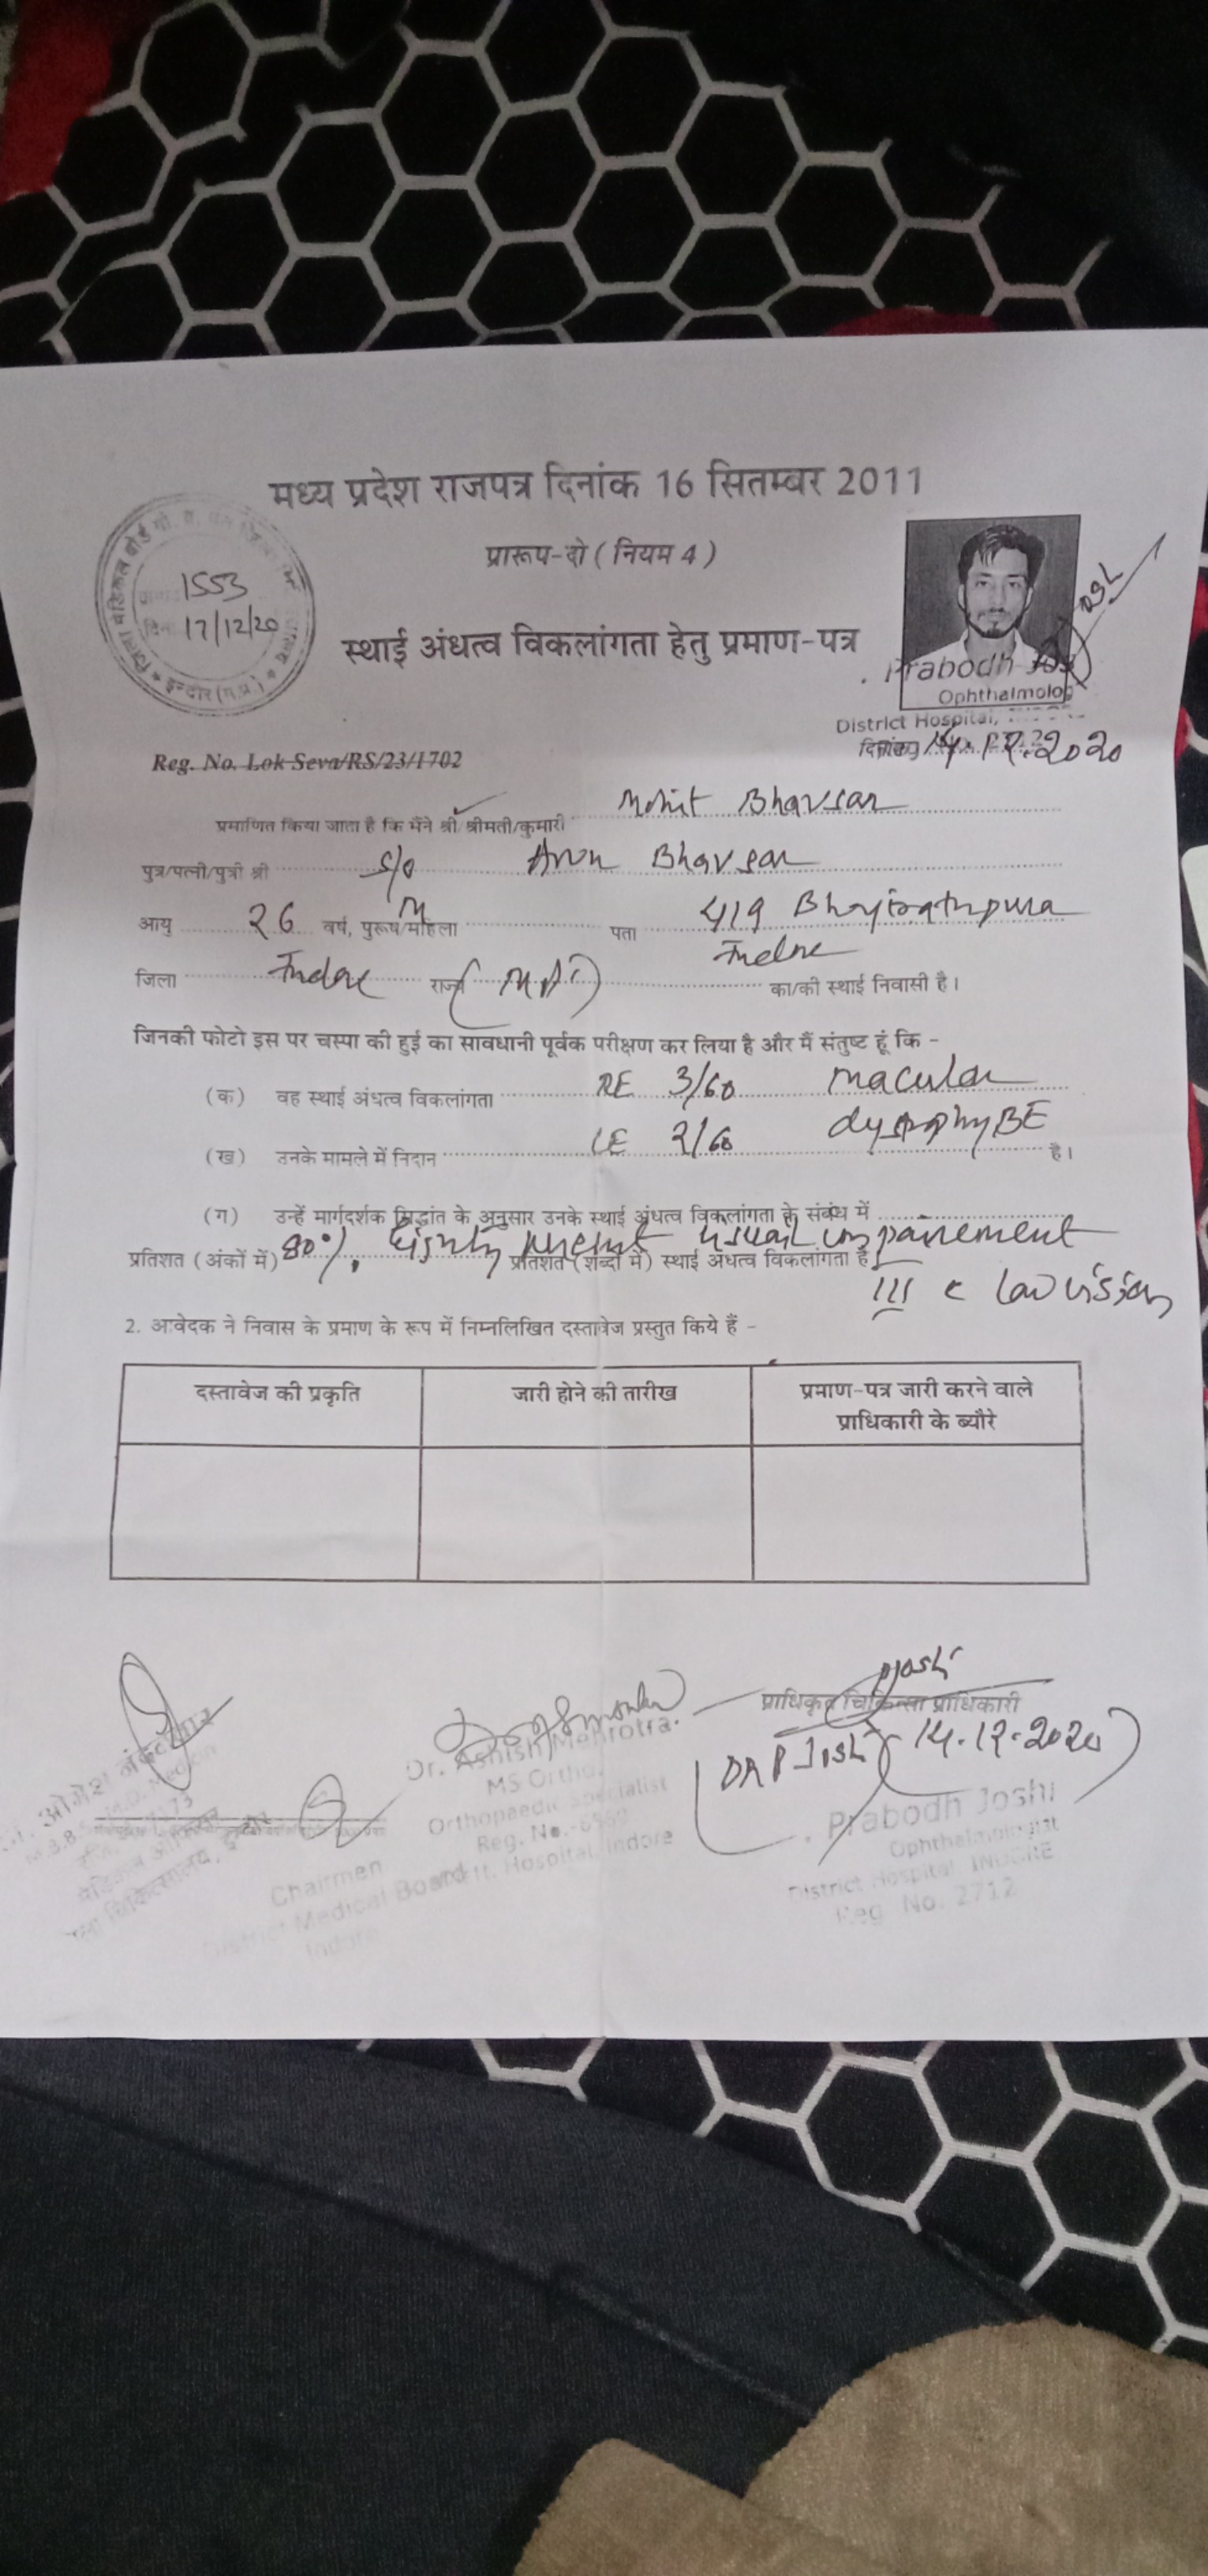 मध्य प्रदेश राजपत्र दिनांक 16 सितम्बर 2011
प्रारूप-दो ( नियम 4 )
1553
17/12/20
इन्दौर (म.प्र.)
स्थाई अंधत्व विकलांगता हेतु प्रमाण-पत्र
Prabodh
Ophthalmolog
District Hospital,
14.12.2020
Reg. No. Lok Seva/RS/23/1702
प्रमाणित किया जाता है कि मैंने श्री/श्रीमती/कुमारी Mohit Bhavsar
पुत्र/पत्नी/पुत्री श्री S/o Arun Bhavsar
आयु 26 वर्ष, पुरूष/महिला M पता 419 Bhagirathpura
Indore
जिला Indore राज्य (M.P.) का/की स्थाई निवासी है।
जिनकी फोटो इस पर चस्पा की हुई का सावधानी पूर्वक परीक्षण कर लिया है और मैं संतुष्ट हूं कि -
(क) वह स्थाई अंधत्व विकलांगता RE 3/60 macular
(ख) उनके मामले में निदान LE 2/60 BE है।
(ग) उन्हें मार्गदर्शक सिद्धांत के अनुसार उनके स्थाई अंधत्व विकलांगता के संबंध में
प्रतिशत (अंकों में) 80%, visual impairement प्रतिशत (शब्दों में) स्थाई अंधत्व विकलांगता है
III c low vision
2. आवेदक ने निवास के प्रमाण के रूप में निम्नलिखित दस्तावेज प्रस्तुत किये हैं -
दस्तावेज की प्रकृति जारी होने की तारीख प्रमाण-पत्र जारी करने वाले
प्राधिकारी के ब्यौरे
PJoshi
प्राधिकृत चिकित्सा प्राधिकारी
(DR P Joshi) 14.12.2020
Dr. Ashish Mehrotra.
MS Ortho.
Orthopaedic Specialist
Reg. No.-
Distt. Hospital, Indore
Chairmen
District Medical Board
Indore
Prabodh Joshi
Ophthalmologist
District Hospital, INDORE
Reg. No. 2712